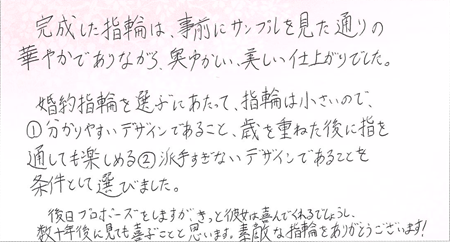 完成した指輪は、事前にサンプルを見た通りの
華やかでありながら、奥ゆかしい、美しい仕上がりでした。
婚約指輪を選ぶにあたって、指輪は小さいので、
①分かりやすいデザインであること、歳を重ねた後に指を
通しても楽しめる②派手すぎないデザインであることを
条件として選びました。
後日プロポーズをしますが、きっと彼女は喜んでくれるでしょうし、
数十年後に見ても喜ぶことと思います。素敵な指輪をありがとうございます!